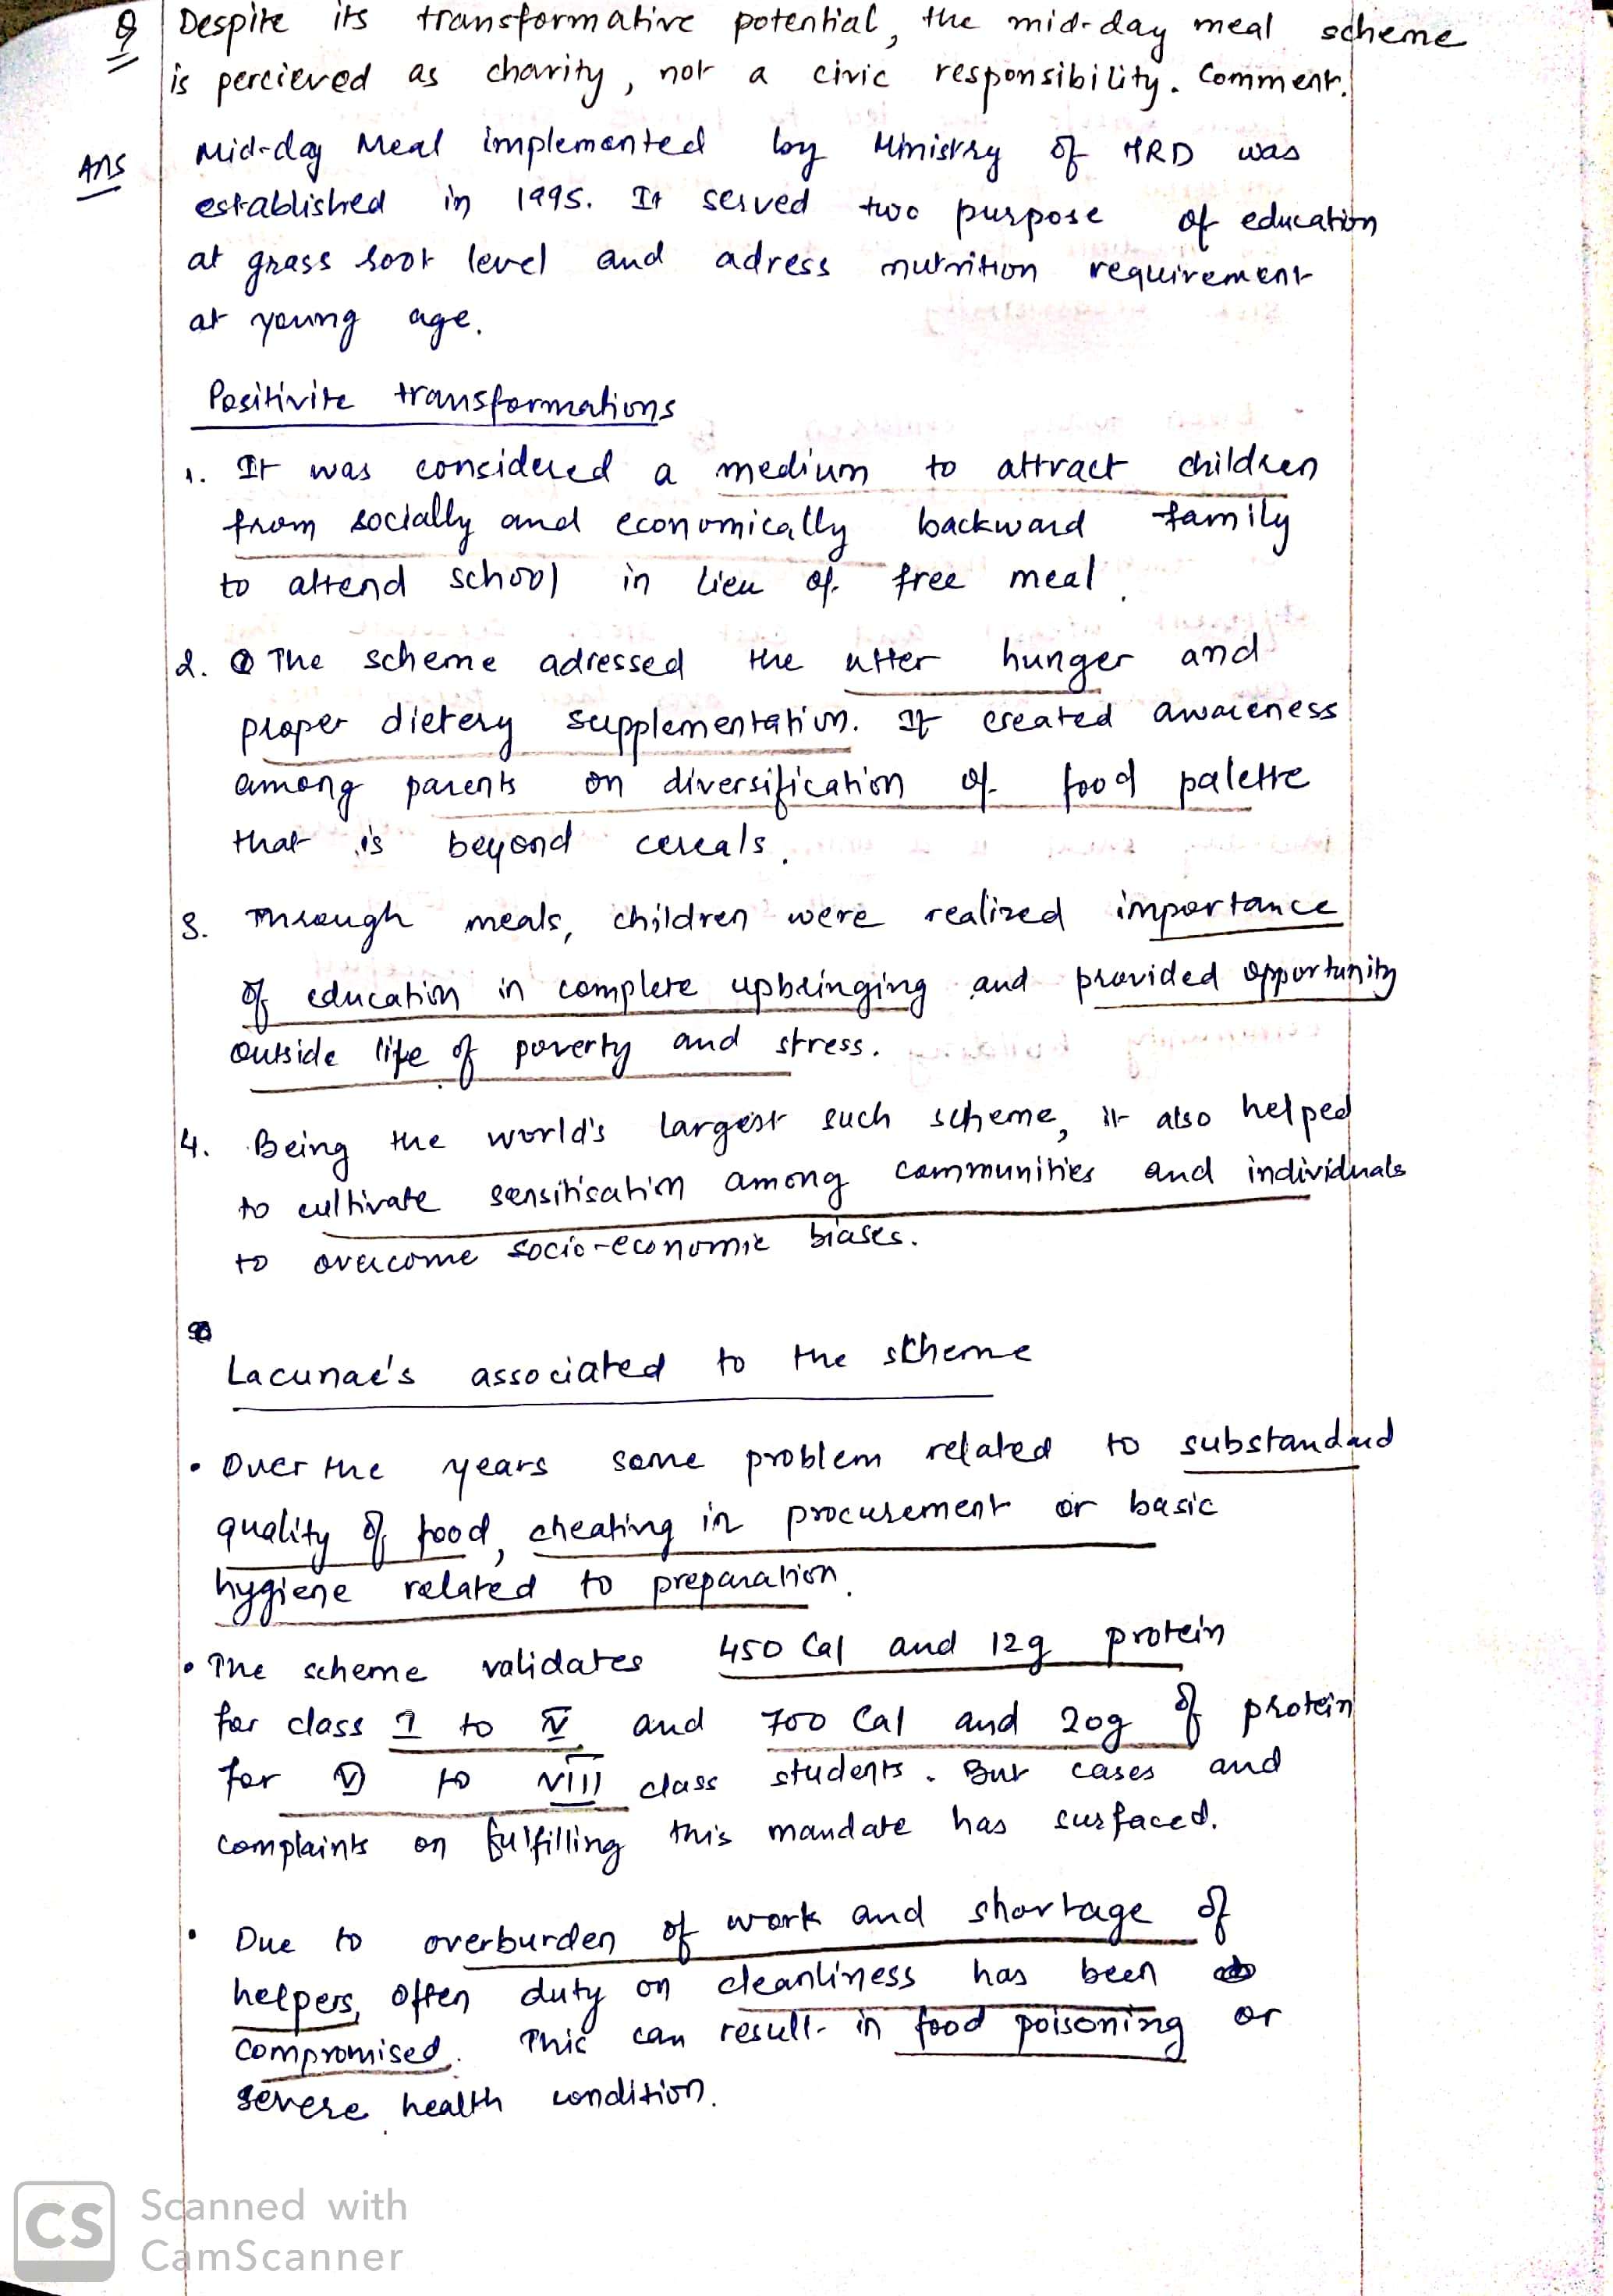 Q Despite its transformative potential, the mid-day meal scheme
is percieved as charity, not a civic responsibility. Comment.
Ans Mid-day Meal implemented by Ministry of HRD was
established in 1995. It served two purpose of education
at grass root level and adress nutrition requirement
at young age.
Positivite transformations
1. It was considered a medium to attract children
from socially and economically backward family
to attend school in lieu of free meal.
2. The scheme adressed the utter hunger and
proper dietery supplementation. It created awareness
among parents on diversification of food palette
that is beyond cereals.
3. Through meals, children were realized importance
of education in complete upbringing and provided opportunity
outside life of poverty and stress.
4. Being the world's largest such scheme, it also helped
to cultivate sensitisation among communities and individuals
to overcome socio-economic biases.
Lacunae's associated to the scheme
• Over the years some problem related to substandard
quality of food, cheating in procurement or basic
hygiene related to preparation.
• The scheme validates 450 Cal and 12g protein
for class I to IV and 700 Cal and 20g of protein
for V to VIII class students. But cases and
complaints on fulfilling this mandate has surfaced.
• Due to overburden of work and shortage of
helpers, often duty on cleanliness has been
compromised. This can result in food poisoning or
severe health condition.
CS Scanned with
CamScanner